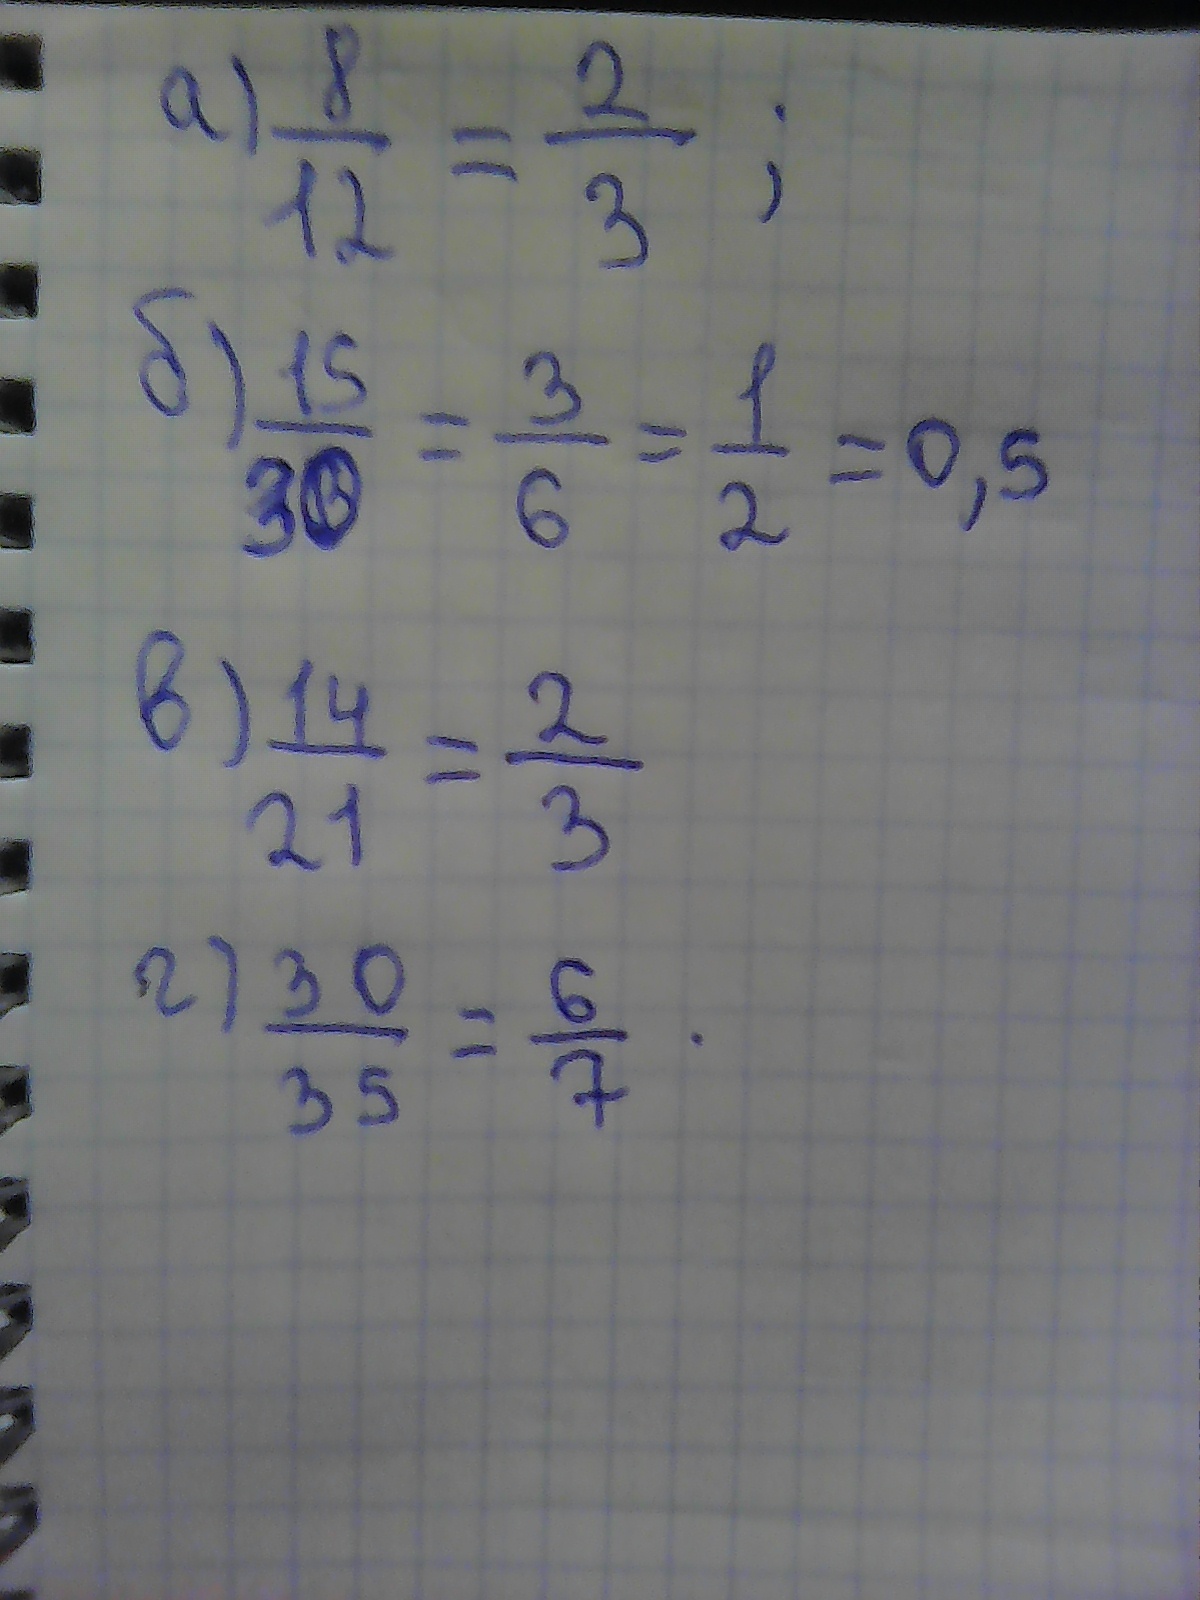 а) 8/12 = 2/3 ;
б) 15/30 = 3/6 = 1/2 = 0,5
в) 14/21 = 2/3
г) 30/35 = 6/7 .